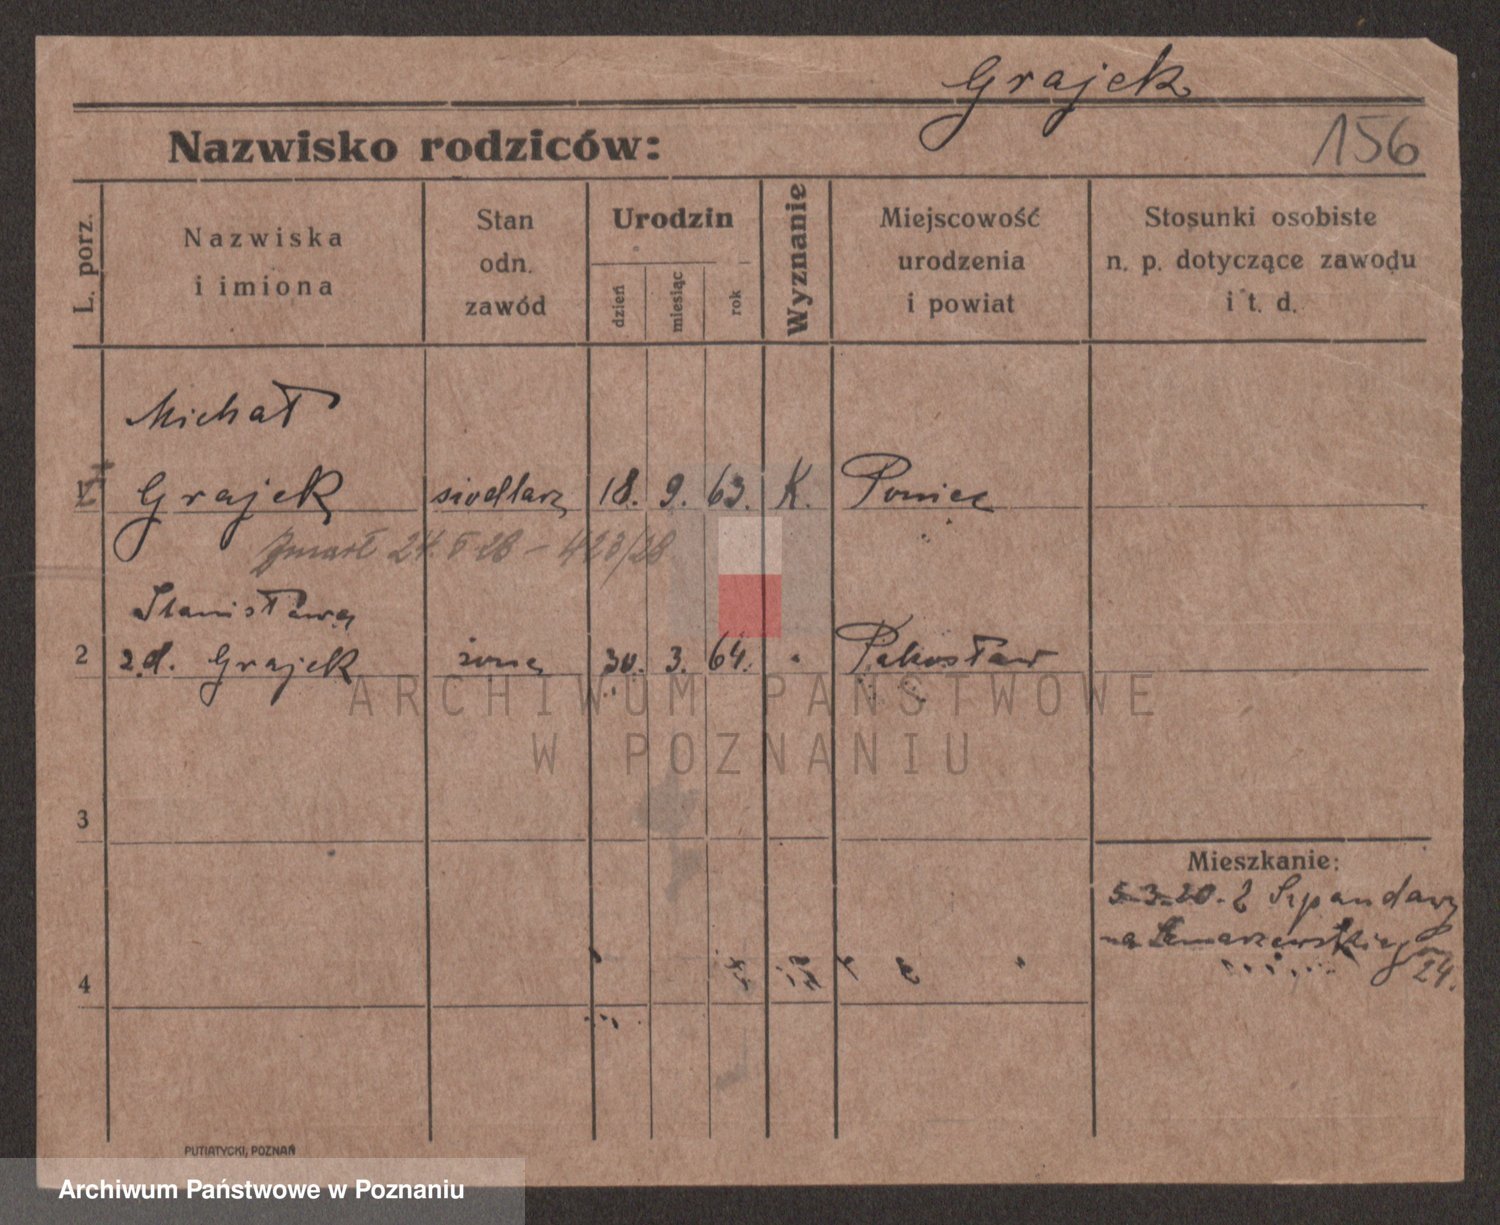 Grajek
Nazwisko rodziców:
156
L. porz.
Nazwiska
i imiona
Stan
odn.
zawód
Urodzin
dzień
miesiąc
rok
Wyznanie
Miejscowość
urodzenia
i powiat
Stosunki osobiste
n. p. dotyczące zawodu
i t. d.
Michał
1 Grajek siodlarz 18. 9. 63. K. Poniec
Zmarł 24. 5 28 – 423/28
Stanisława
2 z.d. Grajek żona 30. 3. 64. " Pakosław
ARCHIWUM PAŃSTWOWE
W POZNANIU
3
Mieszkanie:
5-3-20. z Szpandawy
na 24.
4
PUTIATYCKI, POZNAŃ
Archiwum Państwowe w Poznaniu